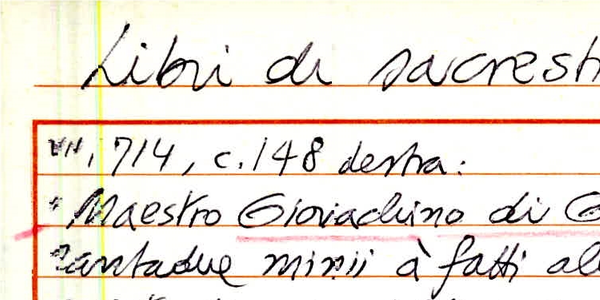 Libri di sacrest
VII, 714, c.148 destra:
"Maestro Gioviachino di G
antadue minii à fatti al